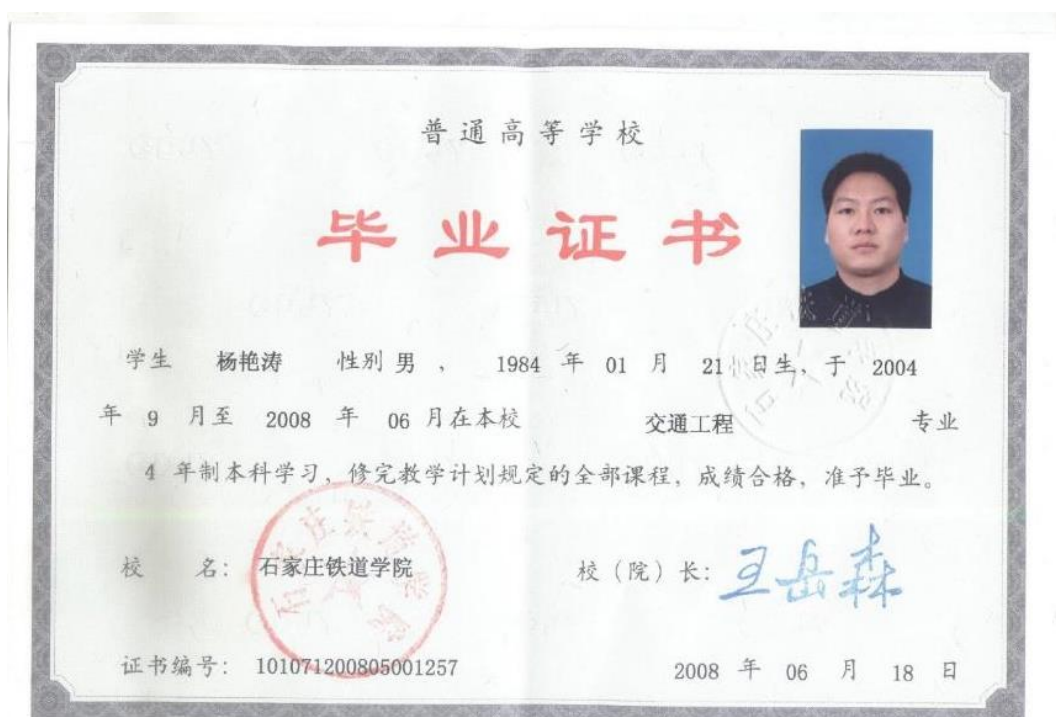 普通高等学校
毕业证书
学生 杨艳涛 性别 男 , 1984 年 01 月 21 日生, 于 2004
年 9 月至 2008 年 06 月在本校 交通工程 专业
4 年制本科学习, 修完教学计划规定的全部课程, 成绩合格, 准予毕业。
校 名: 石家庄铁道学院 校(院)长: 王岳森
石家庄铁道学院
证书编号: 101071200805001257 2008 年 06 月 18 日